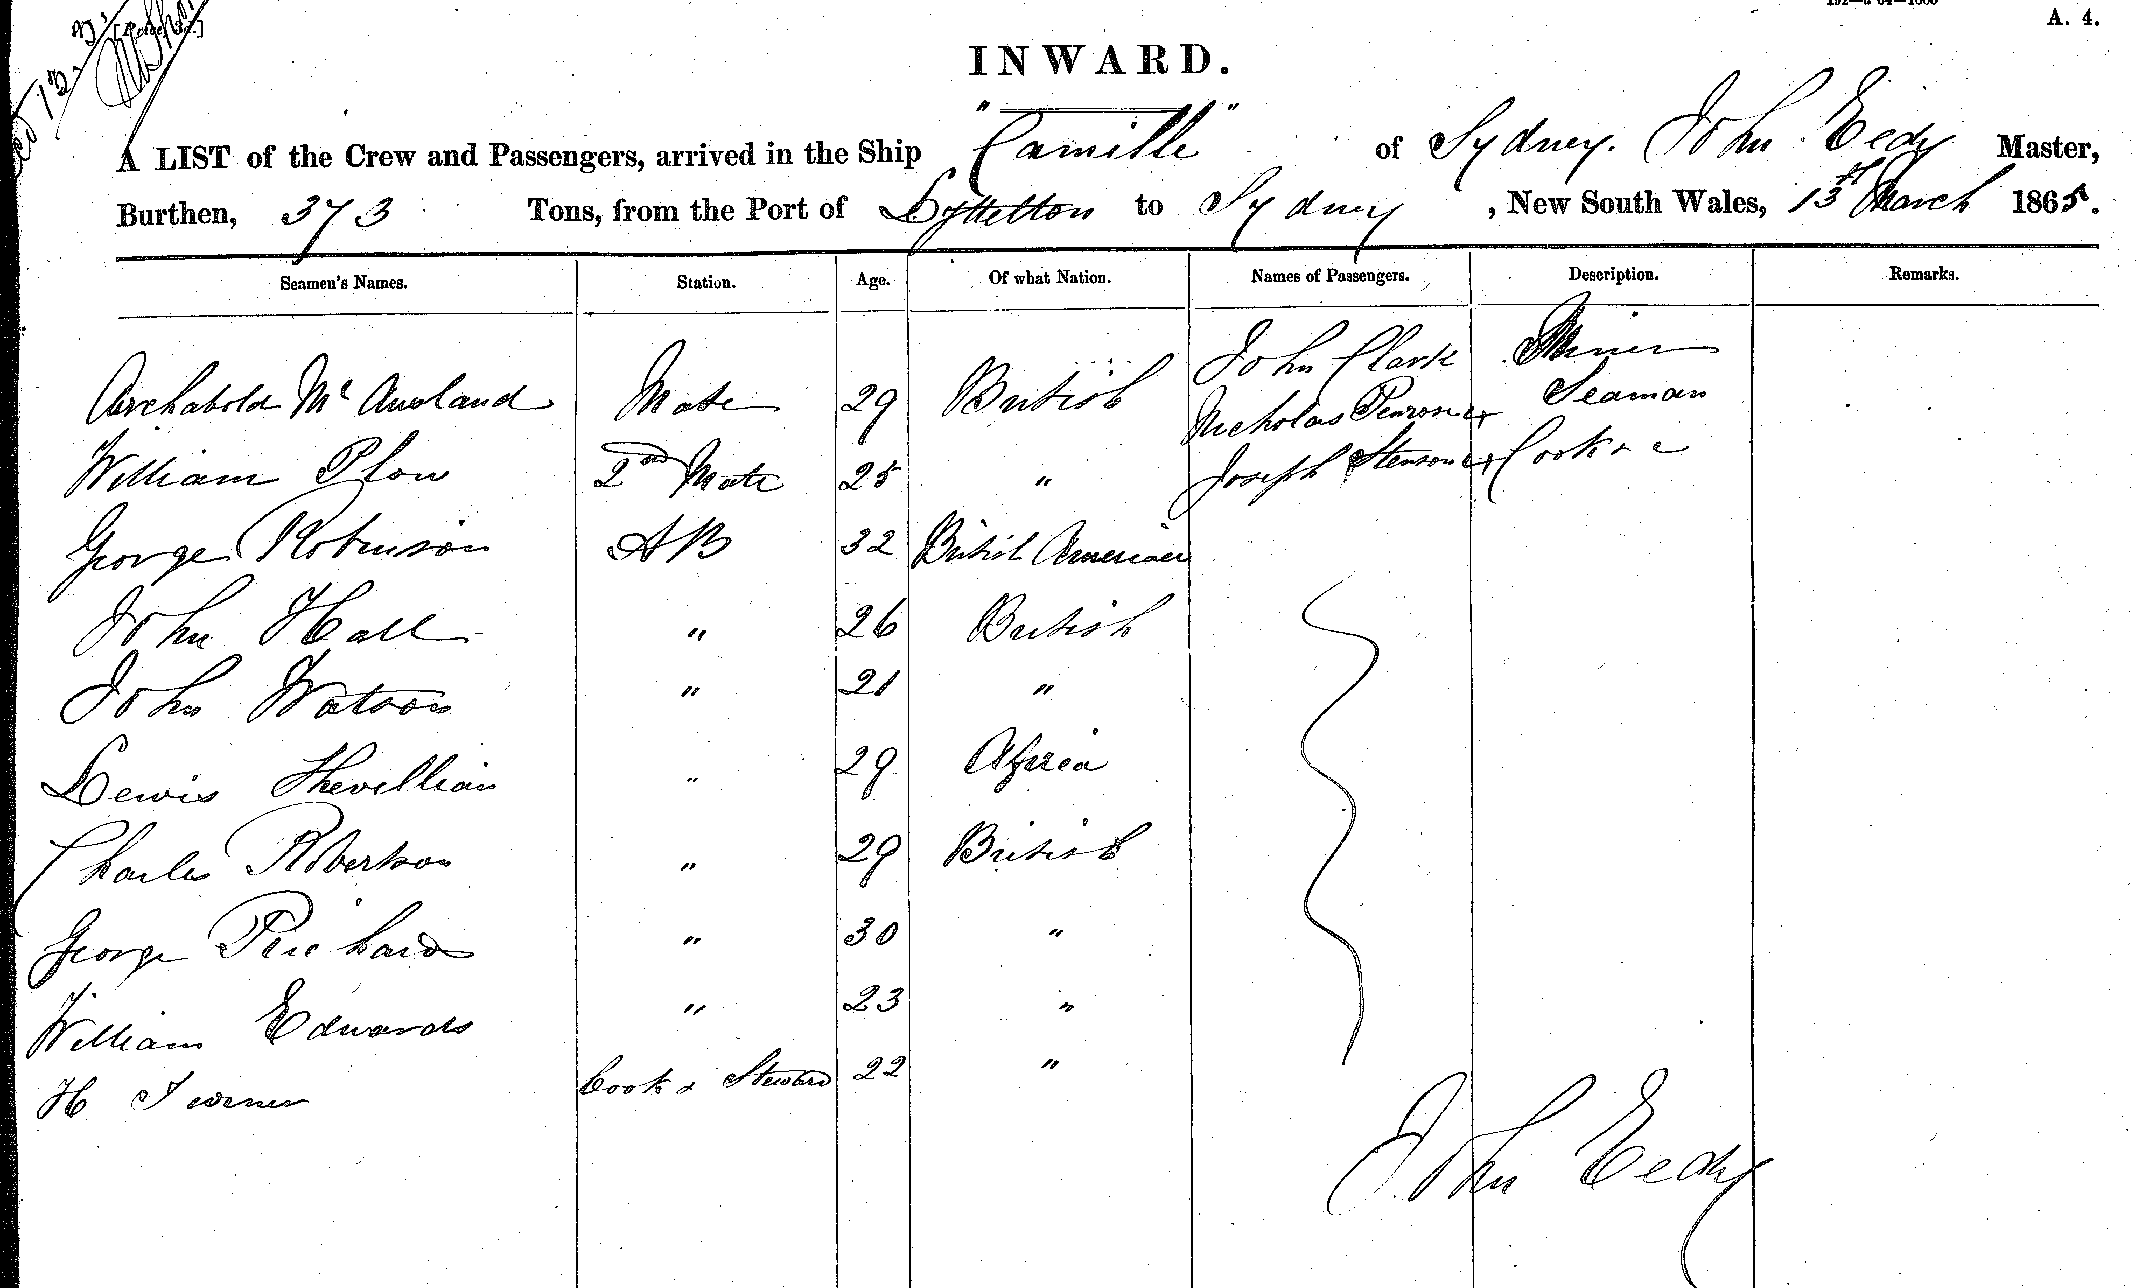 A. 4.
INWARD.
A LIST of the Crew and Passengers, arrived in the Ship "Camille" of Sydney. John Eedy Master,
Burthen, 373 Tons, from the Port of Lyttelton to Sydney, New South Wales, 13th March 1865.
Seamen's Names. Station. Age. Of what Nation. Names of Passengers. Description. Remarks.
John Clark Miner
Archabold Mc Ausland Mate 29 British Nicholas Seaman
William Plow 2nd Mate 25 " Joseph Cook
George Robinson AB 32 British American
John Hall " 26 British
John Watson " 21 "
Lewis " 29 Africa
Charles Robertson " 29 British
George " 30 "
William Edwards " 23 "
H Cook & Steward 22 "
John Eedy